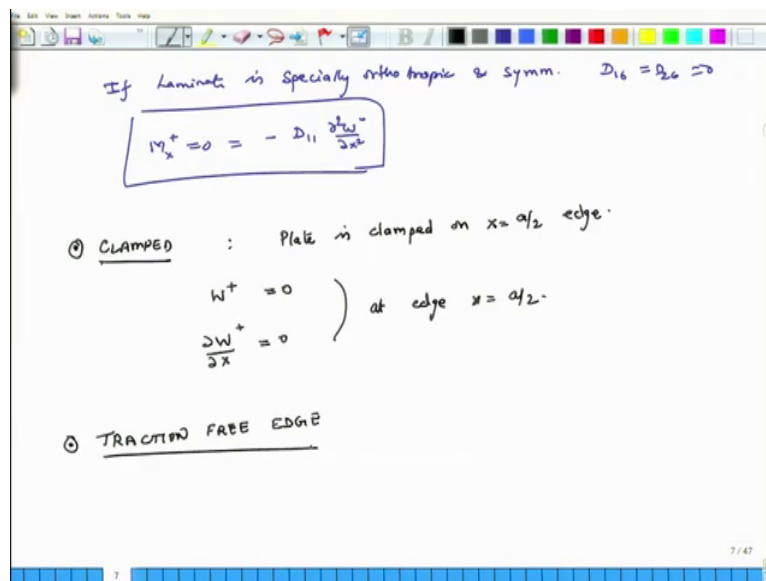 File Edit View Insert Actions Tools Help
B I
If Laminate is specially orthotropic & symm. D₁₆ = D₂₆ = 0
M⁺ₓ = 0 = - D₁₁ ∂²w⁻/∂x²
CLAMPED : Plate is clamped on x = a/2 edge.
W⁺ = 0
∂W⁺/∂x = 0
at edge x = a/2.
TRACTION FREE EDGE
7 / 47
7